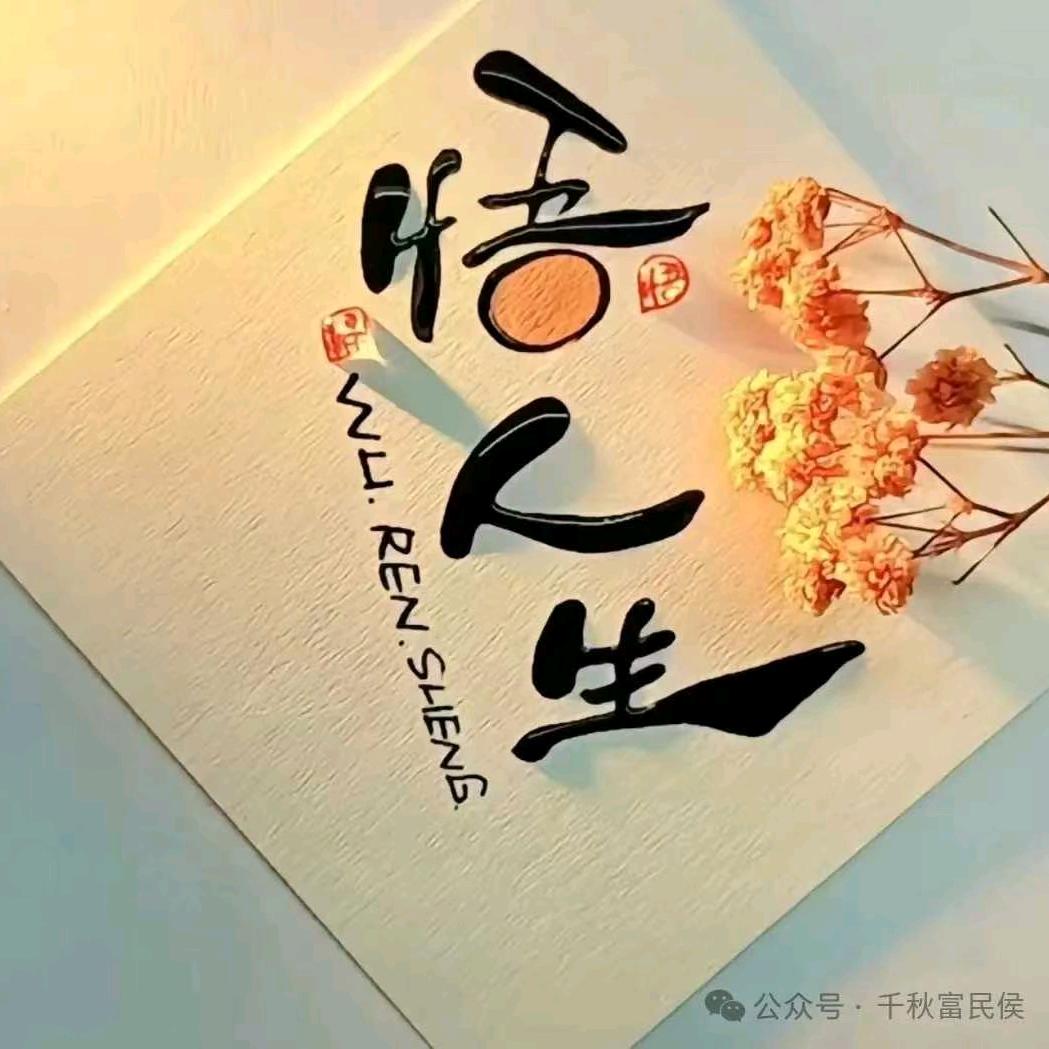 悟人生
WU. REN. SHENG.
公众号 · 千秋富民侯